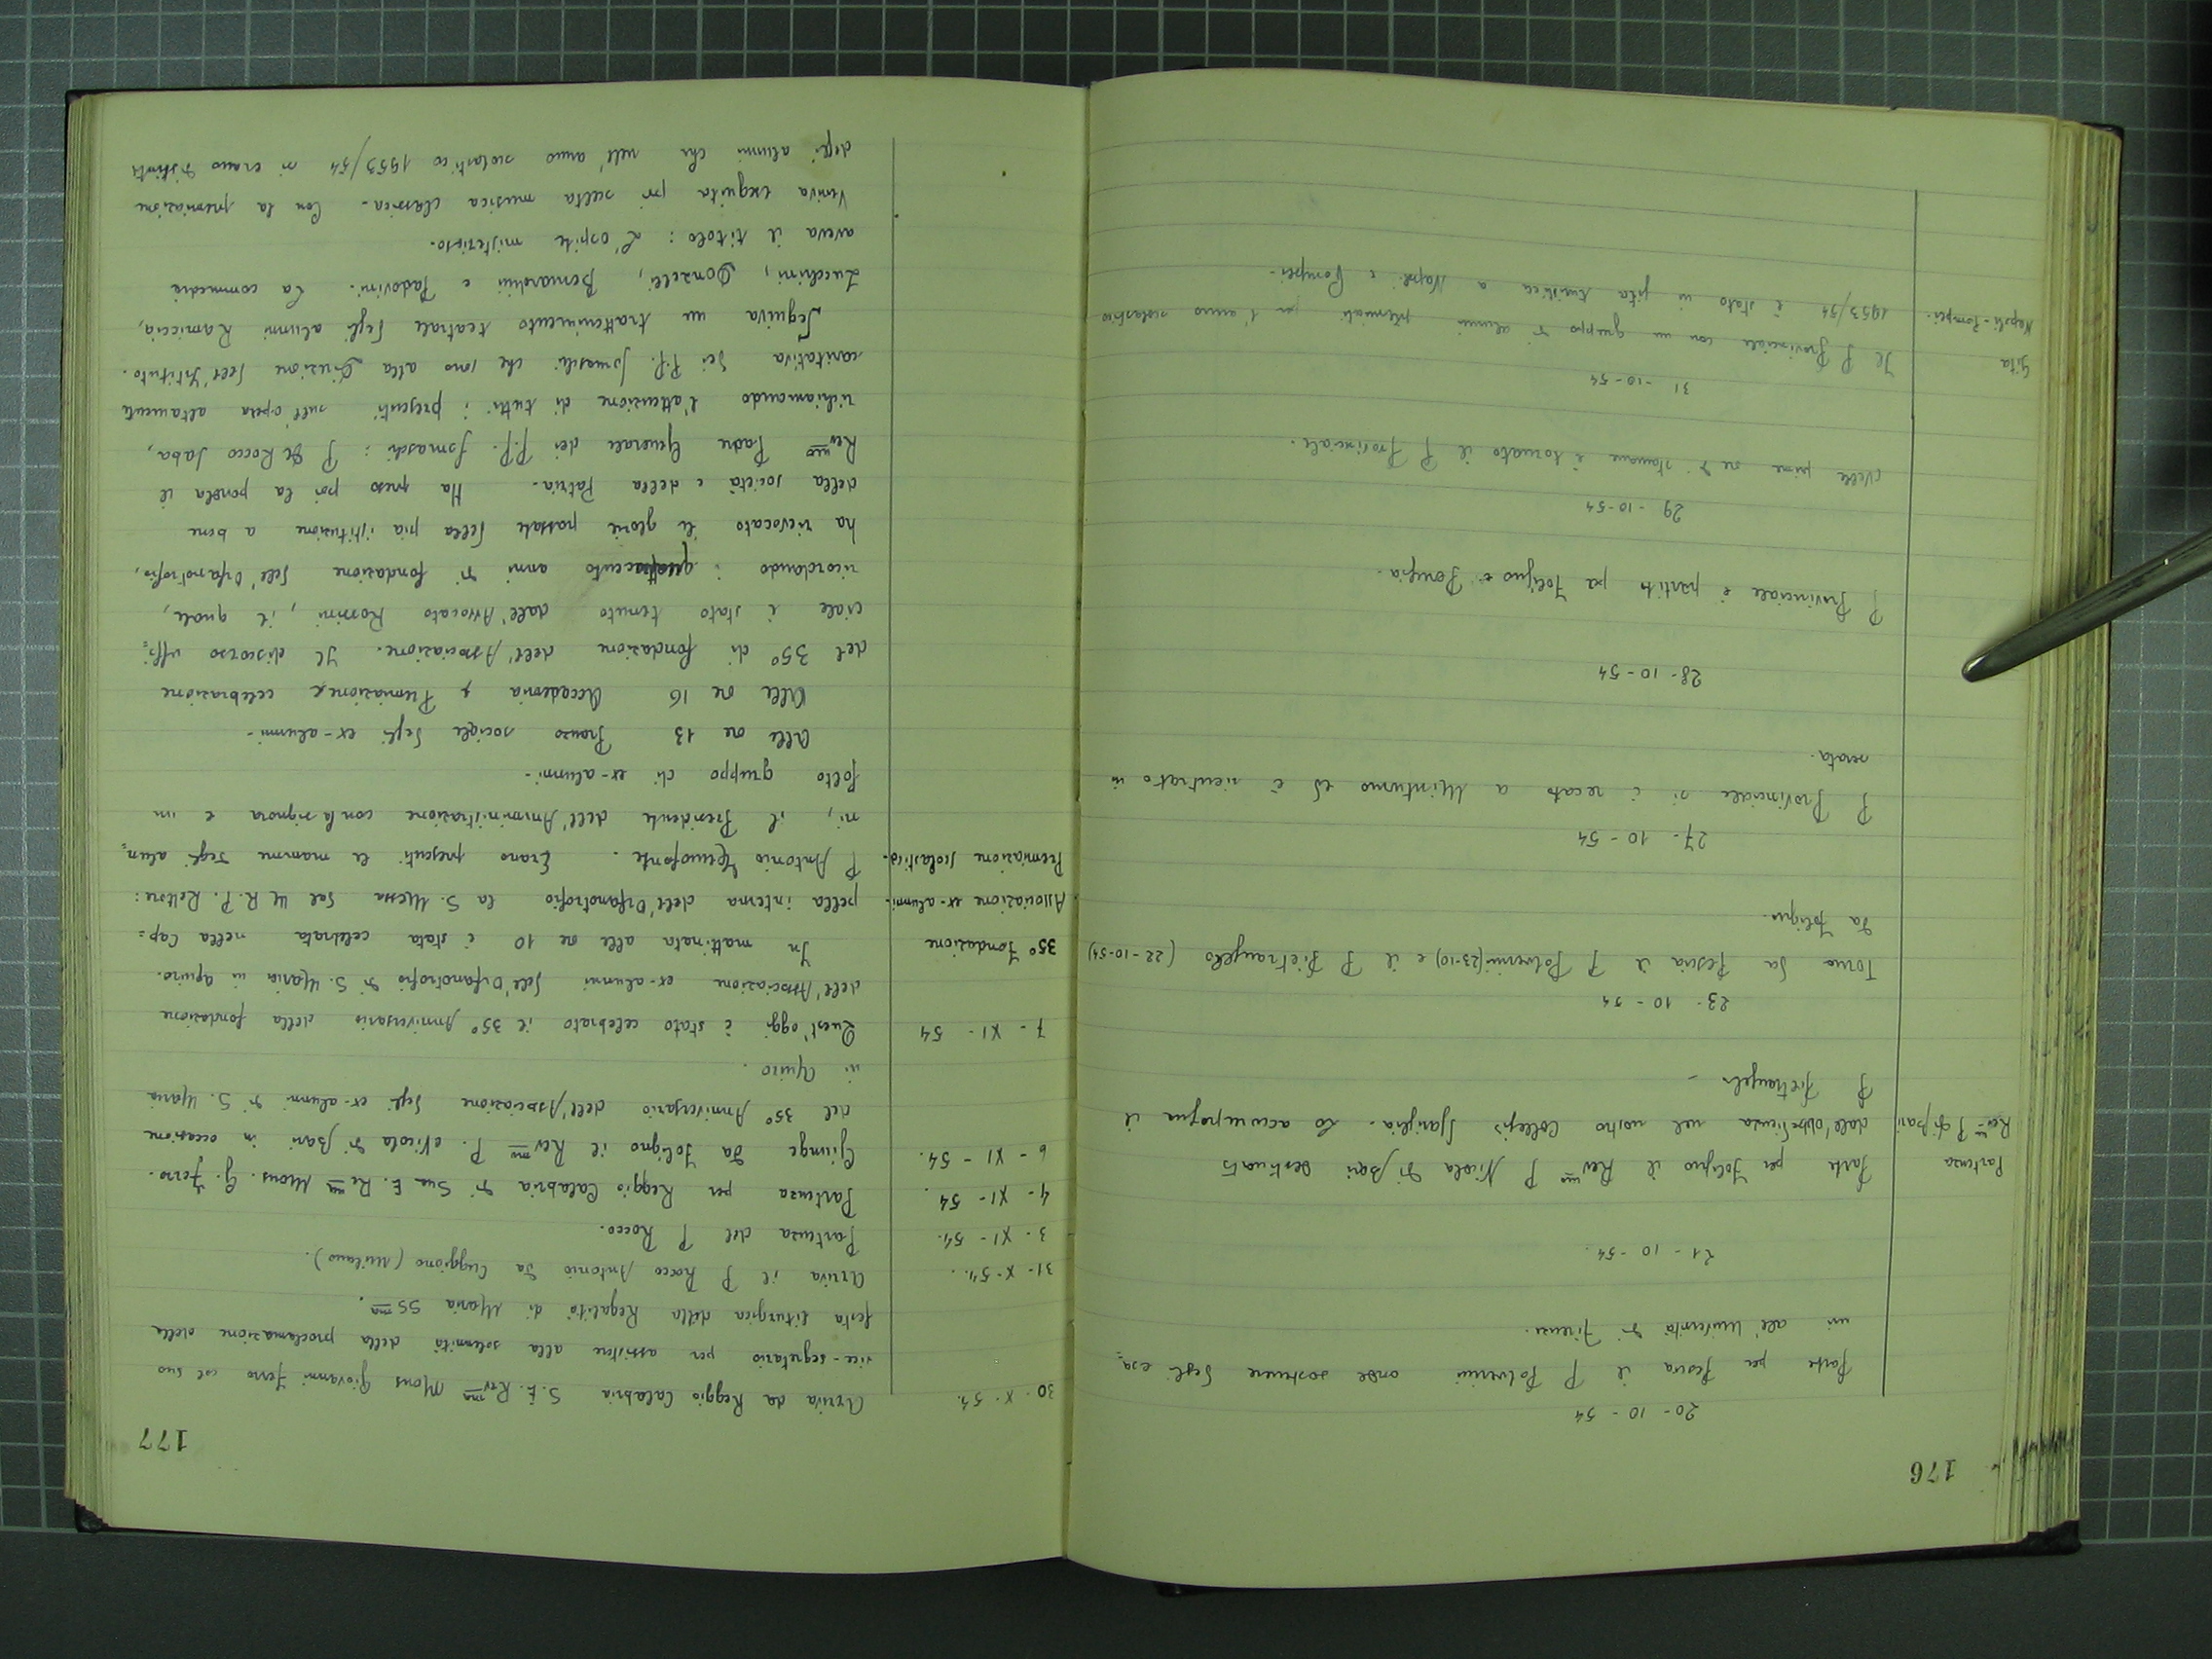 176
20 - 10 - 54
Parte per Pescia il P Polverini onde sostenere degli esa=
mi all'Università di Firenze.
21 - 10 - 54.
Partenza
Rev.mo P di Bari
Parte per Foligno il Rev.mo P Nicola di Bari destinato
dall'obbedienza nel nostro Collegio Sgariglia. Lo accompagna il
P Pietrangelo -
23 - 10 - 54
Torna da Pescia il P Polverini (23-10) e il P Pietrangelo (22-10-54)
da Foligno.
27 - 10 - 54
P Provinciale si è recato a Minturno ed è rientrato in
serata.
28 - 10 - 54
P Provinciale è partito per Foligno e Perugia.
29 - 10 - 54
Nelle prime ore di stamane è tornato il P Provinciale.
31 - 10 - 54
Gita
Napoli - Pompei.
Il P Provinciale con un gruppo di alunni premiati per l'anno scolastico
1953/54 è stato in gita turistica a Napoli e Pompei.
177
30 - X - 54. Arriva da Reggio Calabria S. E. Rev.ma Mons Giovanni Ferro col suo
vice-segretario per assistere alla solennità della proclamazione della
festa liturgica della Regalità di Maria SS.ma.
31 - X - 54. Arriva il P Rocco Antonio da Cuggiono (Milano).
3 - XI - 54. Partenza del P Rocco.
4 - XI - 54 Partenza per Reggio Calabria di Sua E. Re.ma Mons. G. Ferro.
6 - XI - 54. Giunge da Foligno il Rev.mo P. Nicola di Bari in occasione
del 35° Anniversario dell'Associazione degli ex-alunni di S. Maria
in Aquiro.
7 - XI - 54 Quest'oggi è stato celebrato il 35° Anniversario della fondazione
dell'Associazione ex-alunni dell'Orfanotrofio di S. Maria in Aquiro.
35° Fondazione
Associazione ex-alunni.
Premiazione scolastica.
In mattinata alle ore 10 è stata celebrata nella Cap=
pella interna dell'Orfanotrofio la S. Messa dal M. R. P. Rettore:
P Antonio Temofonte. Erano presenti le mamme degli alun=
ni, il Presidente dell'Amministrazione con la signora e un
folto gruppo di ex-alunni.
Alle ore 13 Pranzo sociale degli ex-alunni.
Alle ore 16 Accademia e Premiazione celebrazione
del 35° di fondazione dell'Associazione. Il discorso uffi=
ciale è stato tenuto dall'Avvocato Rossini, il quale,
ricordando i quattrocento anni di fondazione dell'Orfanotrofio,
ha rievocato le glorie passate della pia istituzione a bene
della società e della Patria. Ha preso poi la parola il
Rev.mo Padre Generale dei P.P. Somaschi: P De Rocco Saba,
richiamando l'attenzione di tutti i presenti sull'opera altamente
caritativa dei P.P. Somaschi che sono alla direzione dell'Istituto.
Seguiva un trattenimento teatrale degli alunni Ramiccia,
Zucchini, Donzelli, Bernardini e Padovini. La commedia
aveva il titolo: L'ospite misterioso.
Veniva eseguita poi scelta musica classica. Con la premiazione
degli alunni che nell'anno scolastico 1953/54 si erano distinti